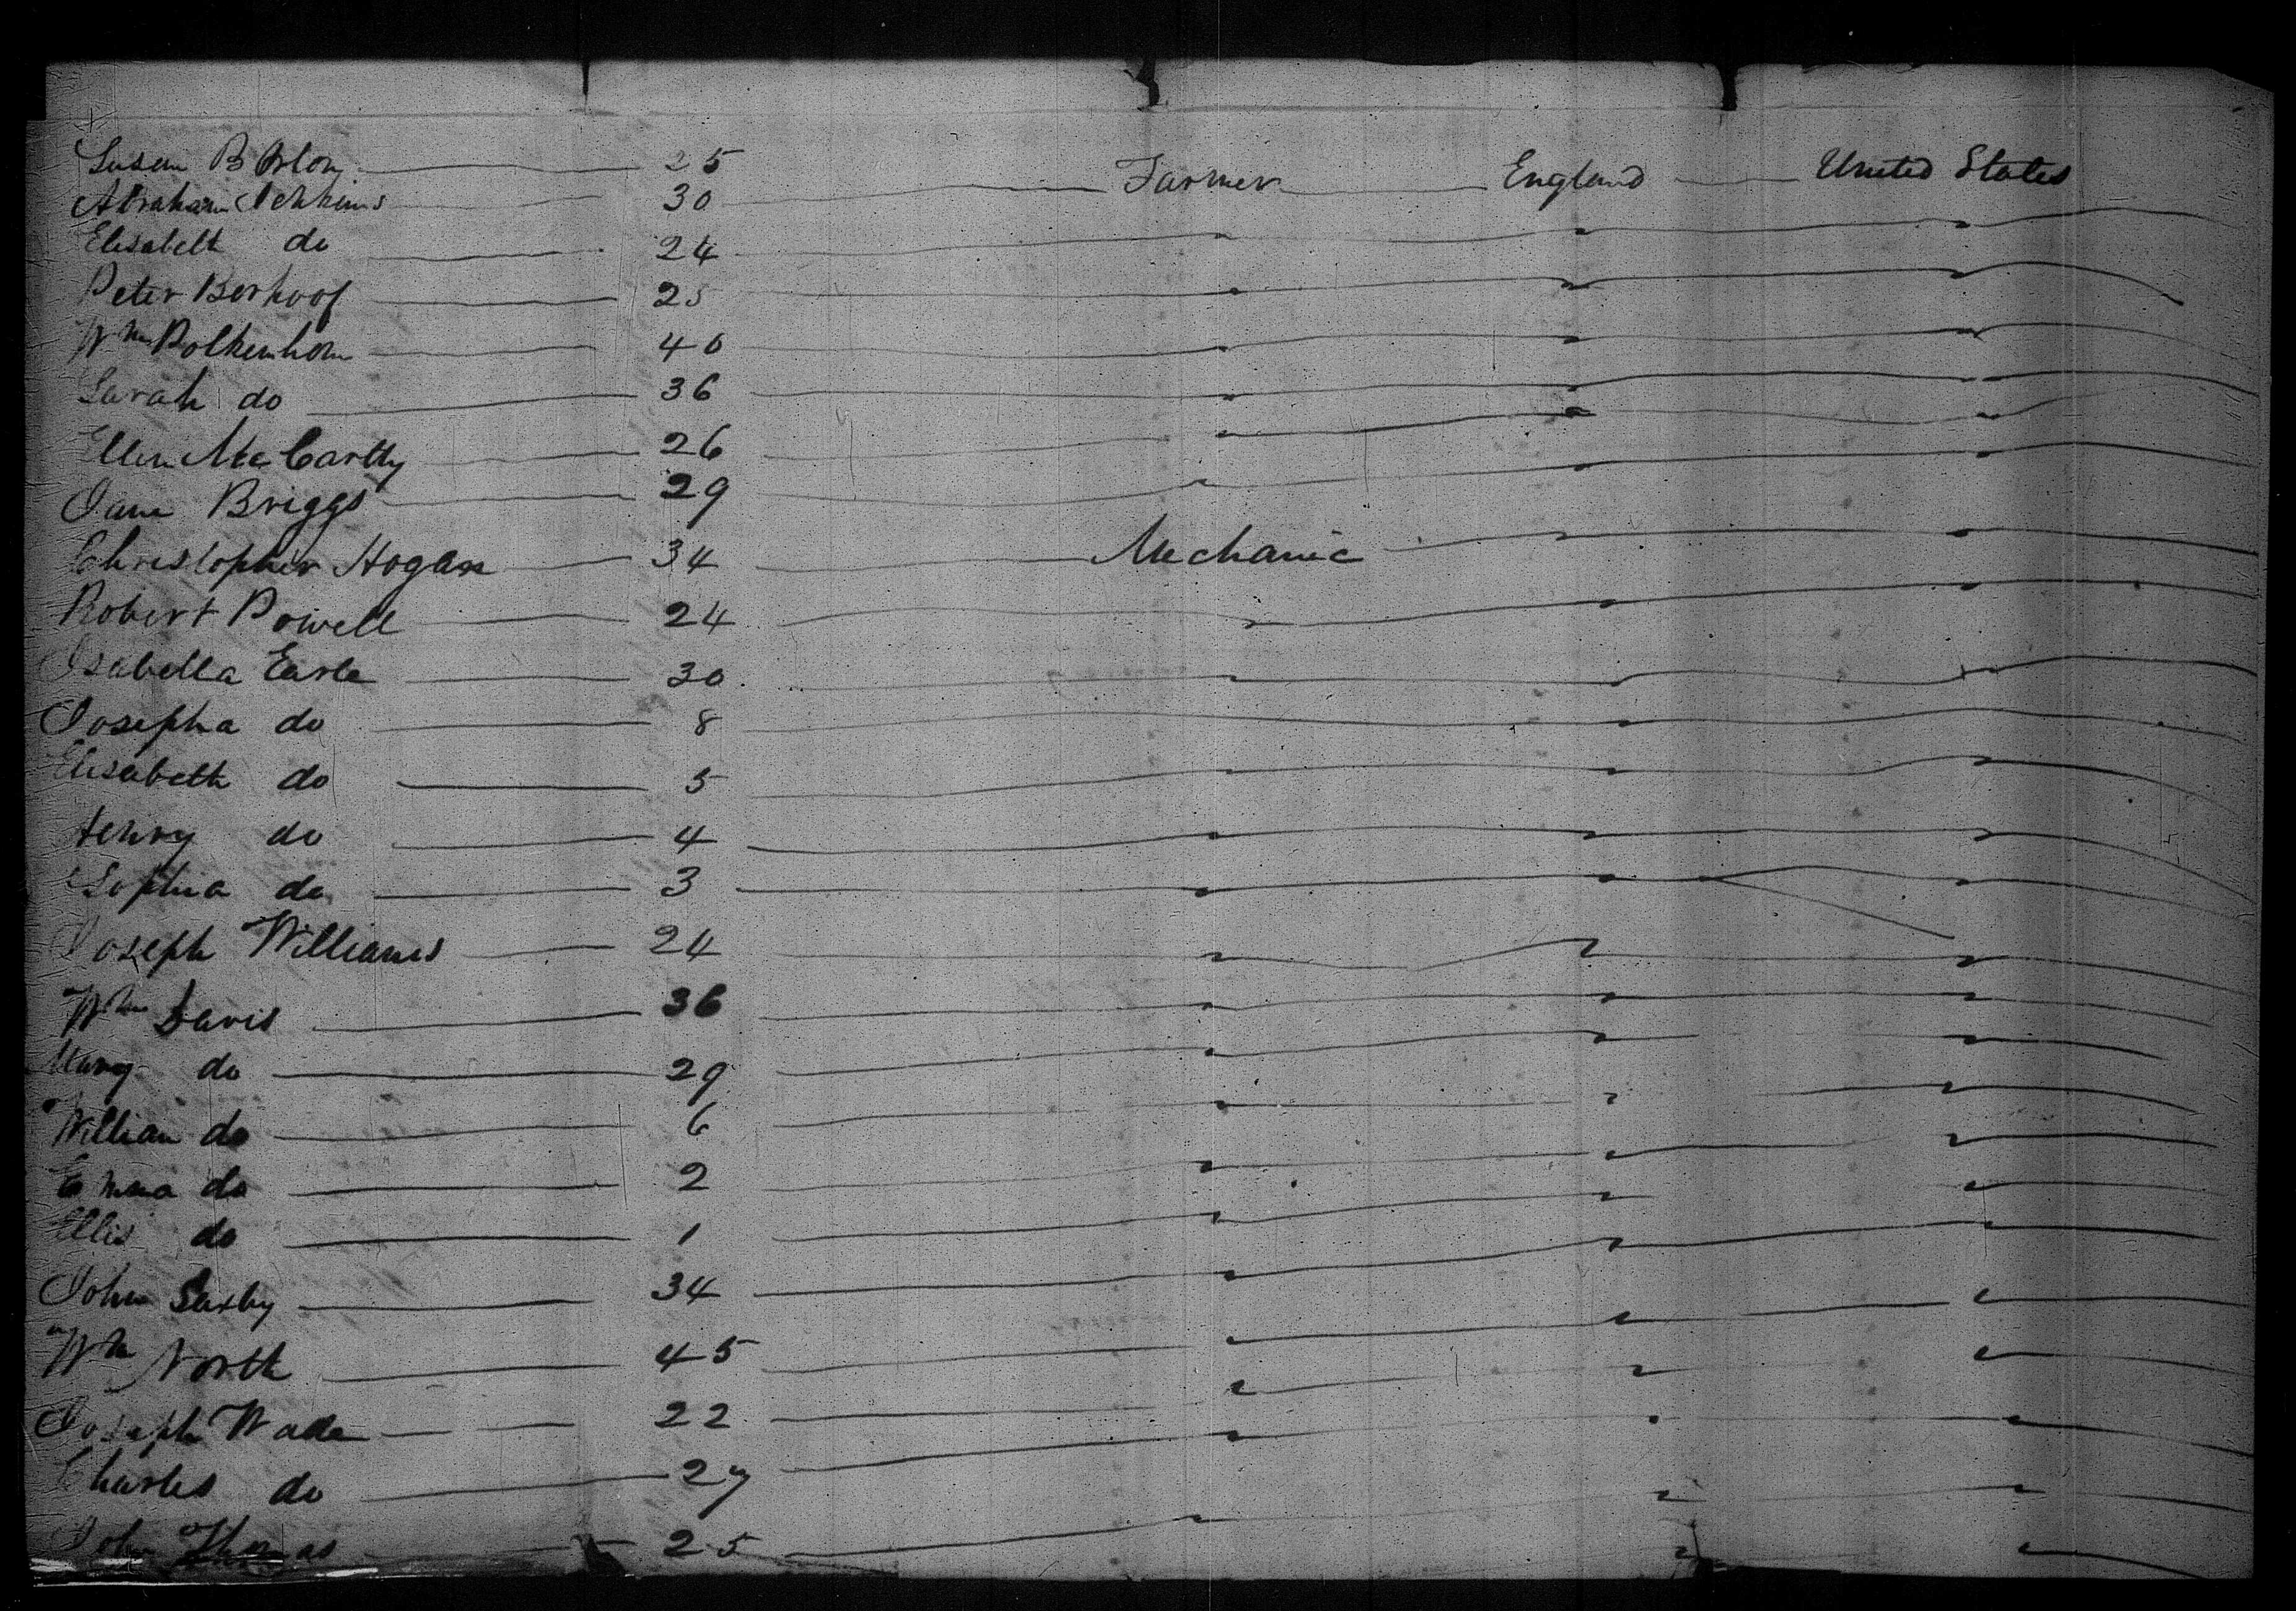 Susan B 25 Farmer England United States
Abraham Jenkins 30
Elisabeth do 24
Peter Berhoof 25
Wm Polkenhom 40
Sarah do 36
Ellen McCartty 26
Jane Briggs 29
Christopher Hogan 34 Mechanic
Robert Powell 24
Isabella Earle 30
Josepha do 8
Elisabeth do 5
Henry do 4
Sophia do 3
Joseph Williams 24
Wm Davis 36
Mary do 29
William do 6
Emma do 2
Ellis do 1
John Saxby 34
Wm North 45
Joseph Wade 22
Charles do 27
John Thomas 25